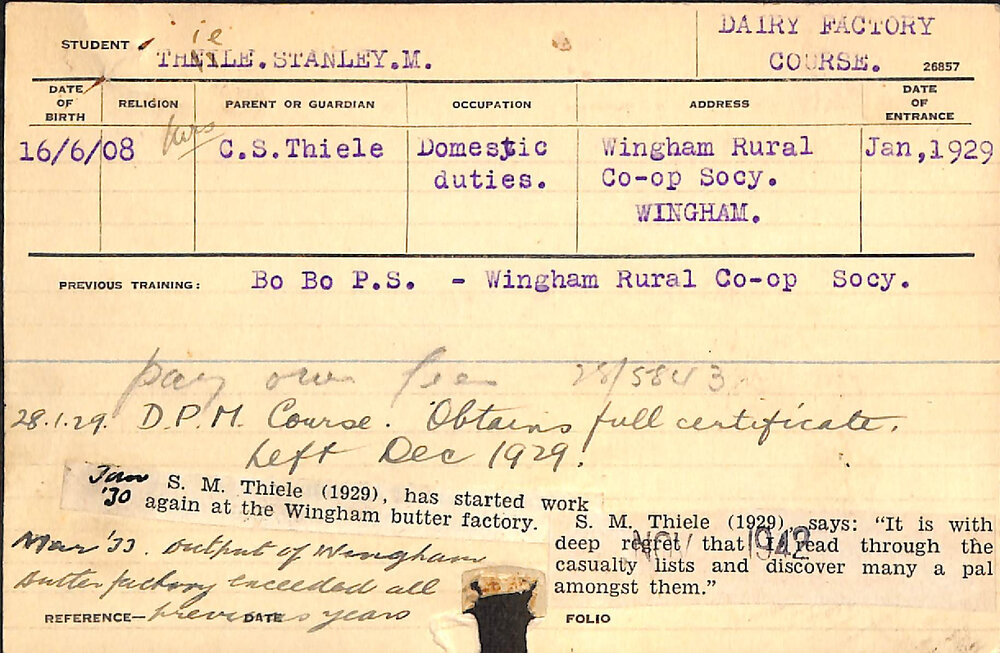 STUDENT THEILE.STANLEY.M. DAIRY FACTORY
ie
COURSE. 26857
DATE OF BIRTH RELIGION PARENT OR GUARDIAN OCCUPATION ADDRESS DATE OF ENTRANCE
16/6/08 C.S.Thiele Domestic Wingham Rural Jan,1929
duties. Co-op Socy.
WINGHAM.
PREVIOUS TRAINING: Bo Bo P.S. - Wingham Rural Co-op Socy.
pay own fees 28/5843
28.1.29. D.P.M. Course. Obtains full certificate.
Left Dec 1929.
Jan '30
S. M. Thiele (1929), has started work
again at the Wingham butter factory.
S. M. Thiele (1929), says: "It is with
deep regret that I read through the
casualty lists and discover many a pal
amongst them."
NOV 1942
Mar '33. output of Wingham
butter factory exceeded all
previous years
REFERENCE— DATE FOLIO